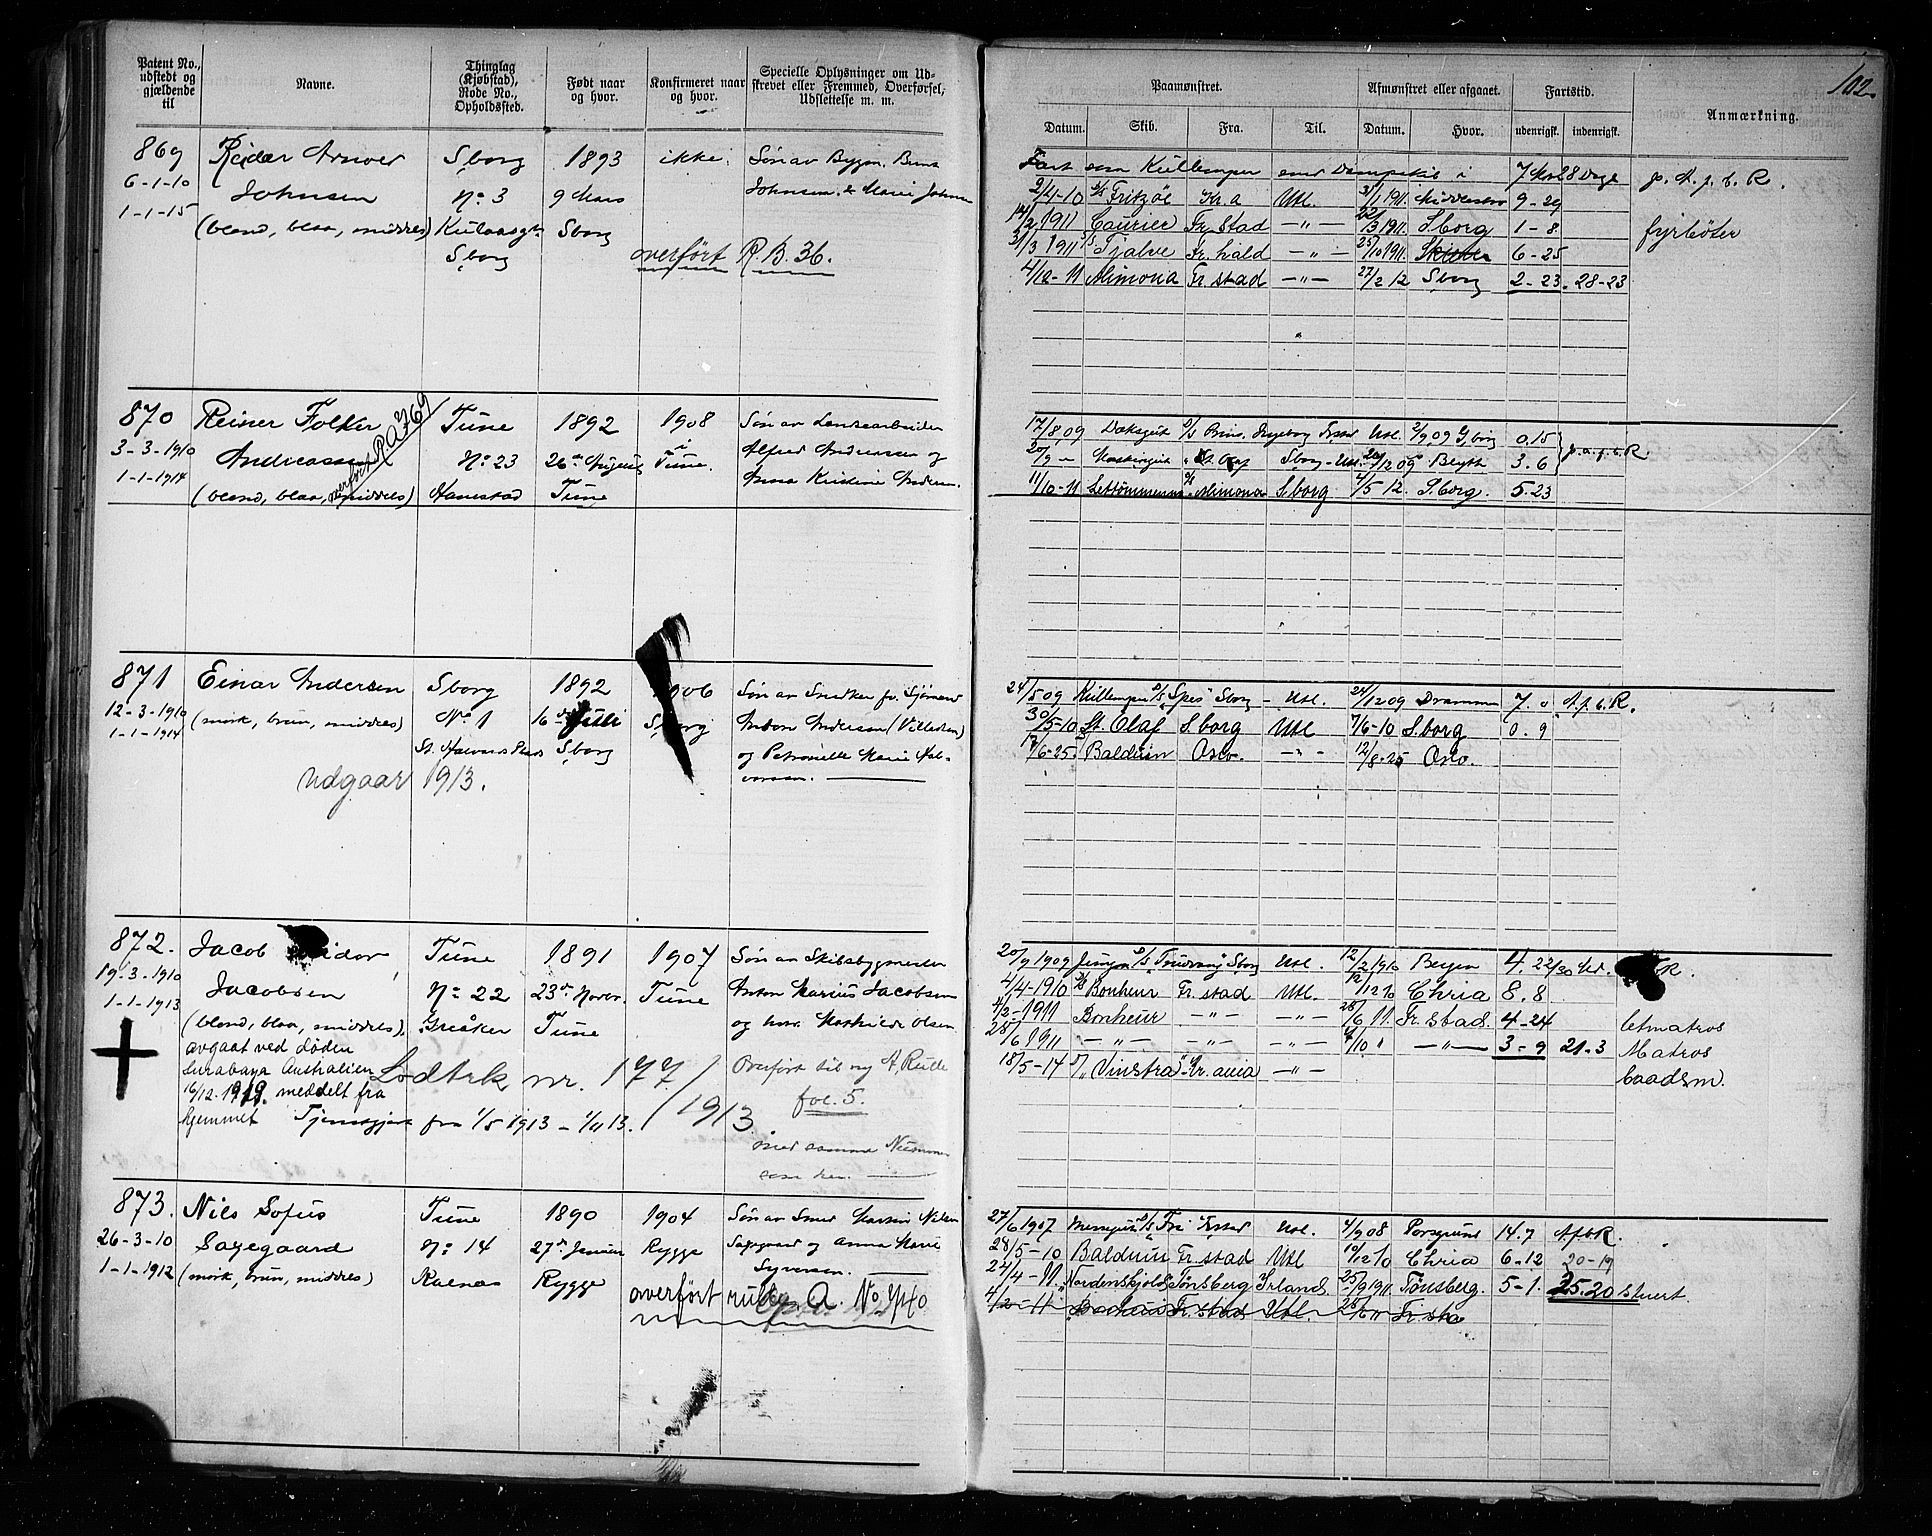 102.
Patent No., udstedt og gjældende til
Navne.
Thinglag (Kjøbstad), Rode No., Opholdssted.
Født naar og hvor.
Konfirmeret naar og hvor.
Specielle Oplysninger om Udskrevet eller Fremmed, Overførsel, Udslettelse m. m.
Paamønstret.
Afmønstret eller afgaaet.
Fartstid.
Anmærkning.
Datum. Skib. Fra. Til. Datum. Hvor. udenrigsk. indenrigsk.
869 Reidar Arnold Sborg 1893 ikke. Søn av Bygm.
6-1-10 Johnsen No 3 9 Mars Johnsen & Marie Johnsen
1-1-15 (blond, blaa, middels) Kulaasgt. Sborg
Sborg overført R. B. 36.
Fart som Kullemper med Dampskib i 7 Mnd 28 Dage
2/4-10 S/S Fritzöe Kr.a Utl. 3/1 1911. 9-29
14/2 1911 Courier Fr. stad -"- 22/3 1911. Sborg 1-8 fyrböter
31/3 1911 S/S Tjalve Fr. hald -"- 25/10 1911. 6-25
4/10-11 Mimona Fr. stad -"- 27/2 12 Sborg 2-23. 28-23
870 Reiner Folker Tune 1892 1908 Søn av Lensearbeider
3-3-1910 Andreassen No 23 26de August i Tune. Alfred Andersen og
1-1-1914 (blond, blaa, middels) Hanestad Tune Anna Kristine Andersen.
overført R A 769
17/8 09 Dæksgut S/S Prins. Ingeborg Frstad Utl. 2/9 09 0.15
20/9 - St. Olaf Sborg - Utl. 20/12 09 Blyth 3.6
11/10-11 Mimona S.borg 4/5 12. S.borg. 5.23
871 Einar Andersen Sborg 1892 1906 Søn av Snedker fv. Sjømand
12-3-1910 (mørk, brun, middels) No 1 16de Juli Sborg Anton Andersen
1-1-1914 St. Halvards Plads Sborg og Petronelle Marie Halvorsen.
Udgaar 1913.
24/5 09 Kullemper S/S "Spes" Sborg - Utl. 24/12 09 Drammen 7. 0 A.f.b.R.
30/5-10 St. Olaf S.borg Utl 7/6-10 S.borg 0. 9
17/6-25. Balduin Oslo. -"- 12/8-25 Oslo.
872. Jacob Tune 1891 1907 Søn av Skibsbygmester
19-3-1910 Jacobsen No 22 23de Novbr. Tune Anton Marius Jacobsen
1-1-1913 (blond, blaa, middels) Greåker Tune og Mathilde Olsen
avgaat ved døden
Surabaya Australien
16/12. 1919. meddelt fra
hjemmet
Lodtrk nr. 177/1913
Tjenstgjort fra 1/5 1913 - 1/11 13.
Overført til ny A. Rulle
fol. 5.
med samme Nummer
som her.
20/9 1909 S/S Sborg Utl. 12/2 1910 Bergen 4. 22 R.
4/4-1910 S/S Bonheur Fr. stad Utl. 12/12 10 Chria 8. 8
4/2-1911 Bonheur -"- -"- 28/6 11. Fr. stad. 4-24 letmatros
28/6 1911 -"- -"- -"- 4/10 " -"- 3-9 21-3 Matros
18/5-14 "Vinstra" Kr.ania -"- baadsm.
873. Nils Sofus Tune 1890 1904 Søn av Smed Martin Nilsen
26-3-10 Sagegaard No 14 27de Januar Rygge Sagegaard og Anna Marie
1-1-1912 (mørk, brun, middels) Kalnes Rygge Syversen.
overført rulle A. No 940
27/6 1907 Messgut S/S Fri Frstad Utl. 4/9 08 Porsgrund 14.7 AfbR.
28/5-10 Balduin Fr. stad Utl 10/12 10 Chria 6-12 20-19
24/4-11 "Nordenskjold" Tønsberg Irland. 25/9 1911. Tønsberg. 5-1. 25.20 Stuert.
4/2-11 Fr. stad Utl. 28/6 11 Fr. stad